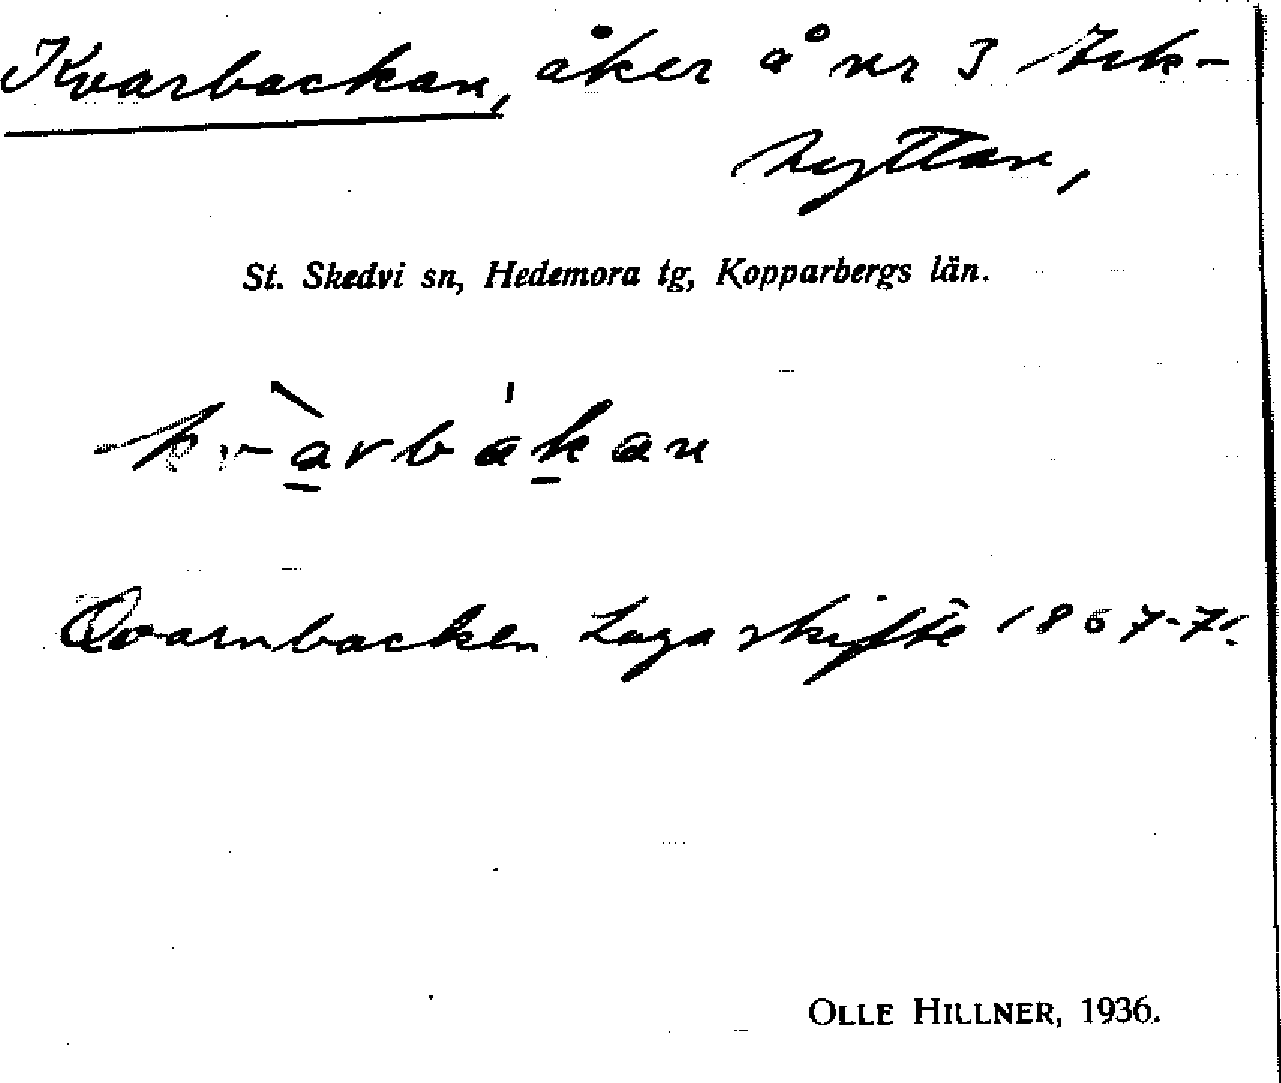 Kvarbackan, åker å nr 3
hyttan,
St. Skedvi sn, Hedemora tg, Kopparbergs län.
kvàrbákan
Qvarnbacken Laga skifte 1867-71.
OLLE HILLNER, 1936.